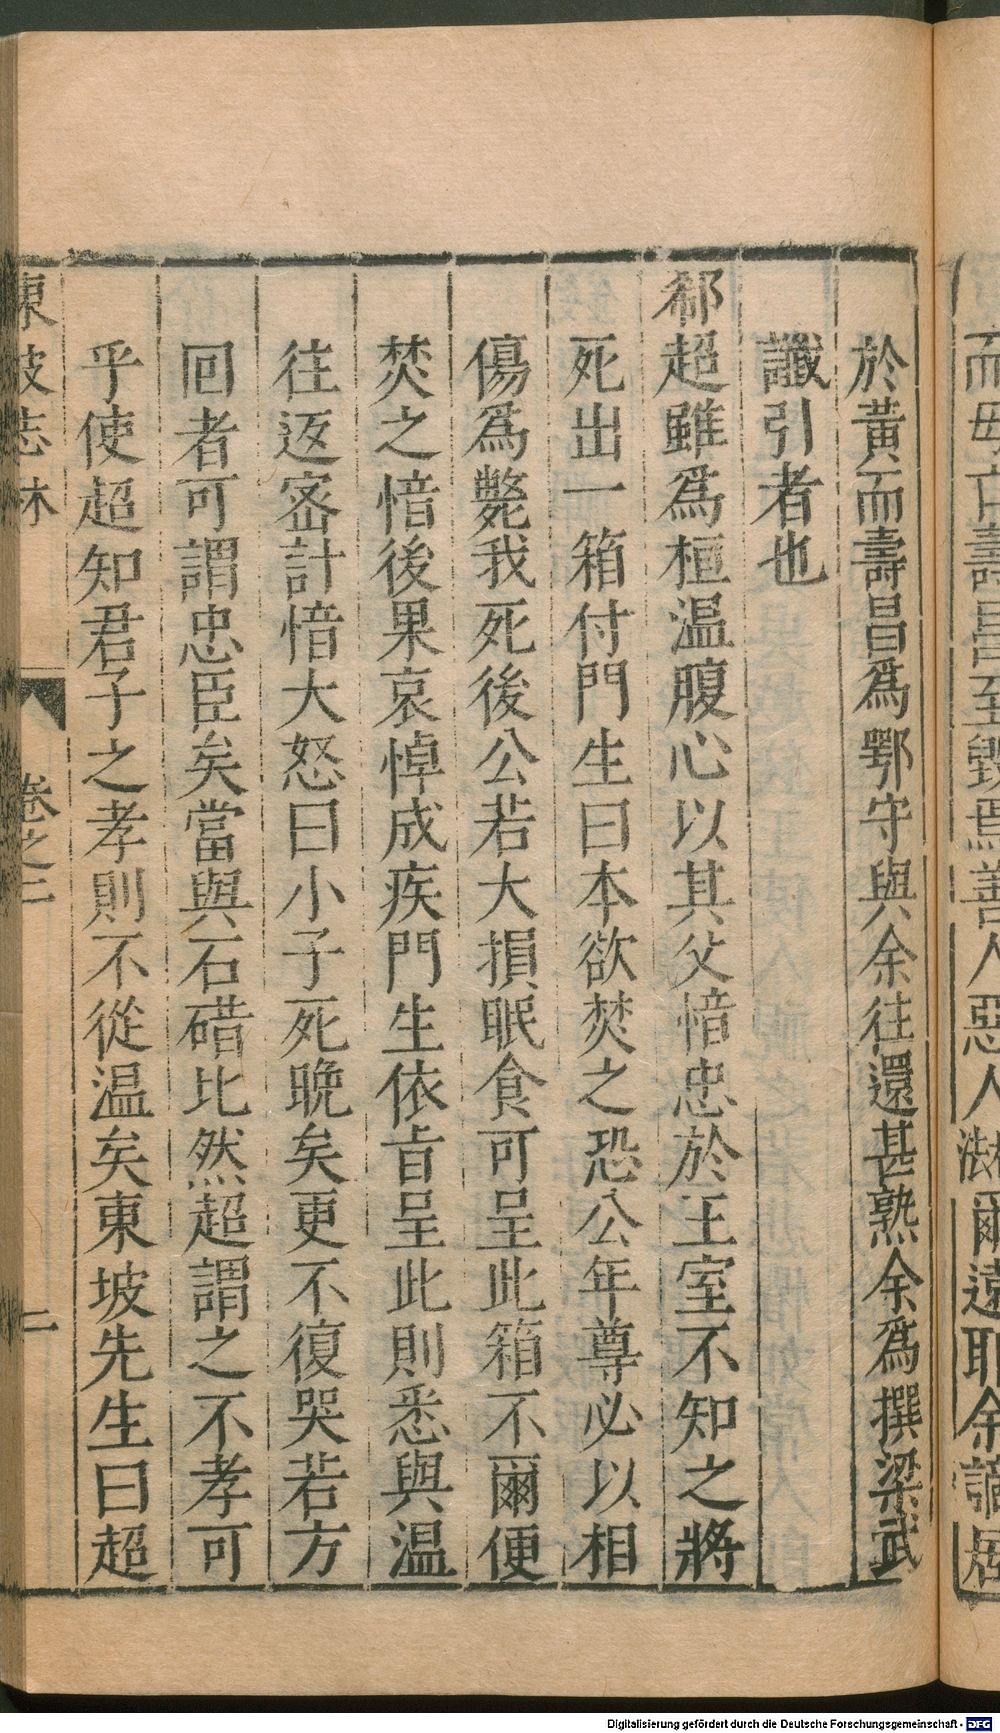 而母亡壽昌至毀焉善人惡人
爾遠耶余謫居
於黃而壽昌爲鄂守與余往還甚熟余爲撰梁武
讖引者也
郗超雖爲桓温腹心以其父愔忠於王室不知之將
死出一箱付門生曰本欲焚之恐公年尊必以相
傷爲斃我死後公若大損眠食可呈此箱不爾便
焚之愔後果哀悼成疾門生依旨呈此則悉與温
往返密計愔大怒曰小子死晚矣更不復哭若方
回者可謂忠臣矣當與石碏比然超謂之不孝可
乎使超知君子之孝則不從温矣東坡先生曰超
東坡志林 卷之二 二
Digitalisierung gefördert durch die Deutsche Forschungsgemeinschaft - DFG